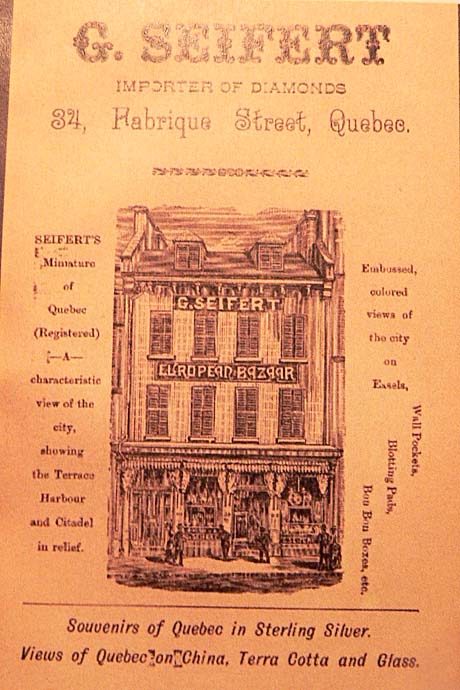 G. SEIFERT
IMPORTER OF DIAMONDS
34, Fabrique Street, Quebec.
SEIFERT'S
Miniature
of
Quebec
(Registered)
—A—
characteristic
view of the
city,
showing
the Terrace
Harbour
and Citadel
in relief.
G. SEIFERT
EUROPEAN BAZAAR
Embossed,
colored
views of
the city
on
Easels,
Wall Pockets,
Blotting Pads,
Bon Bon Boxes, etc.
Souvenirs of Quebec in Sterling Silver.
Views of Quebec on China, Terra Cotta and Glass.